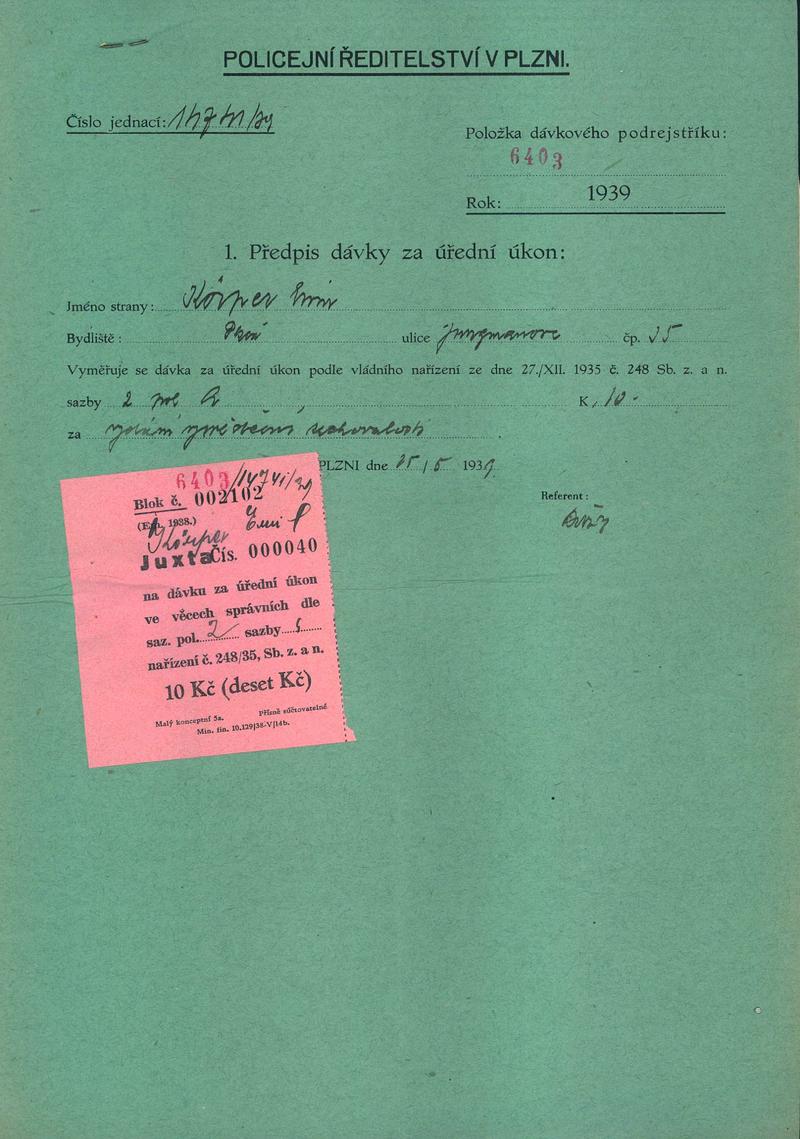 POLICEJNÍ ŘEDITELSTVÍ V PLZNI.
Číslo jednací:
Položka dávkového podrejstříku:
6403
Rok: 1939
1. Předpis dávky za úřední úkon:
Jméno strany: Körper Emil
Bydliště: Plzeň ulice Jungmanova čp.
Vyměřuje se dávka za úřední úkon podle vládního nařízení ze dne 27./XII. 1935 č. 248 Sb. z. a n.
sazby 2 pol K 10.-
za vydání vysvědčení zachovalosti
PLZNI dne 1939
Referent:
6403
Blok č. 002102
1938.)
Körper Emil
Juxta Čís. 000040
na dávku za úřední úkon
ve věcech správních dle
saz. pol. 2 sazby
nařízení č. 248/35, Sb. z. a n.
10 Kč (deset Kč)
Malý konceptní 5a. Přísně súčtovatelné
Min. fin. 10.129/38-V/14b.